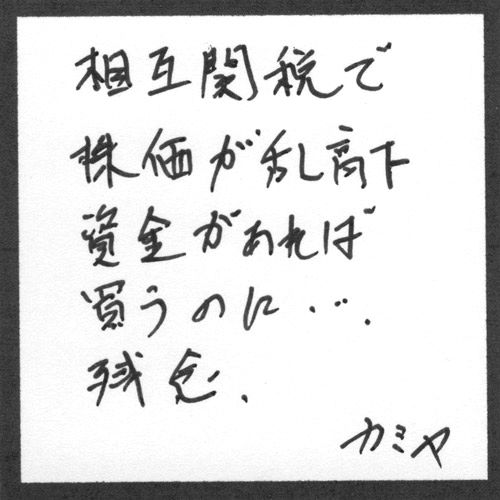 相互関税で
株価が乱高下
資金があれば
買うのに・・・
残念.
カミヤ